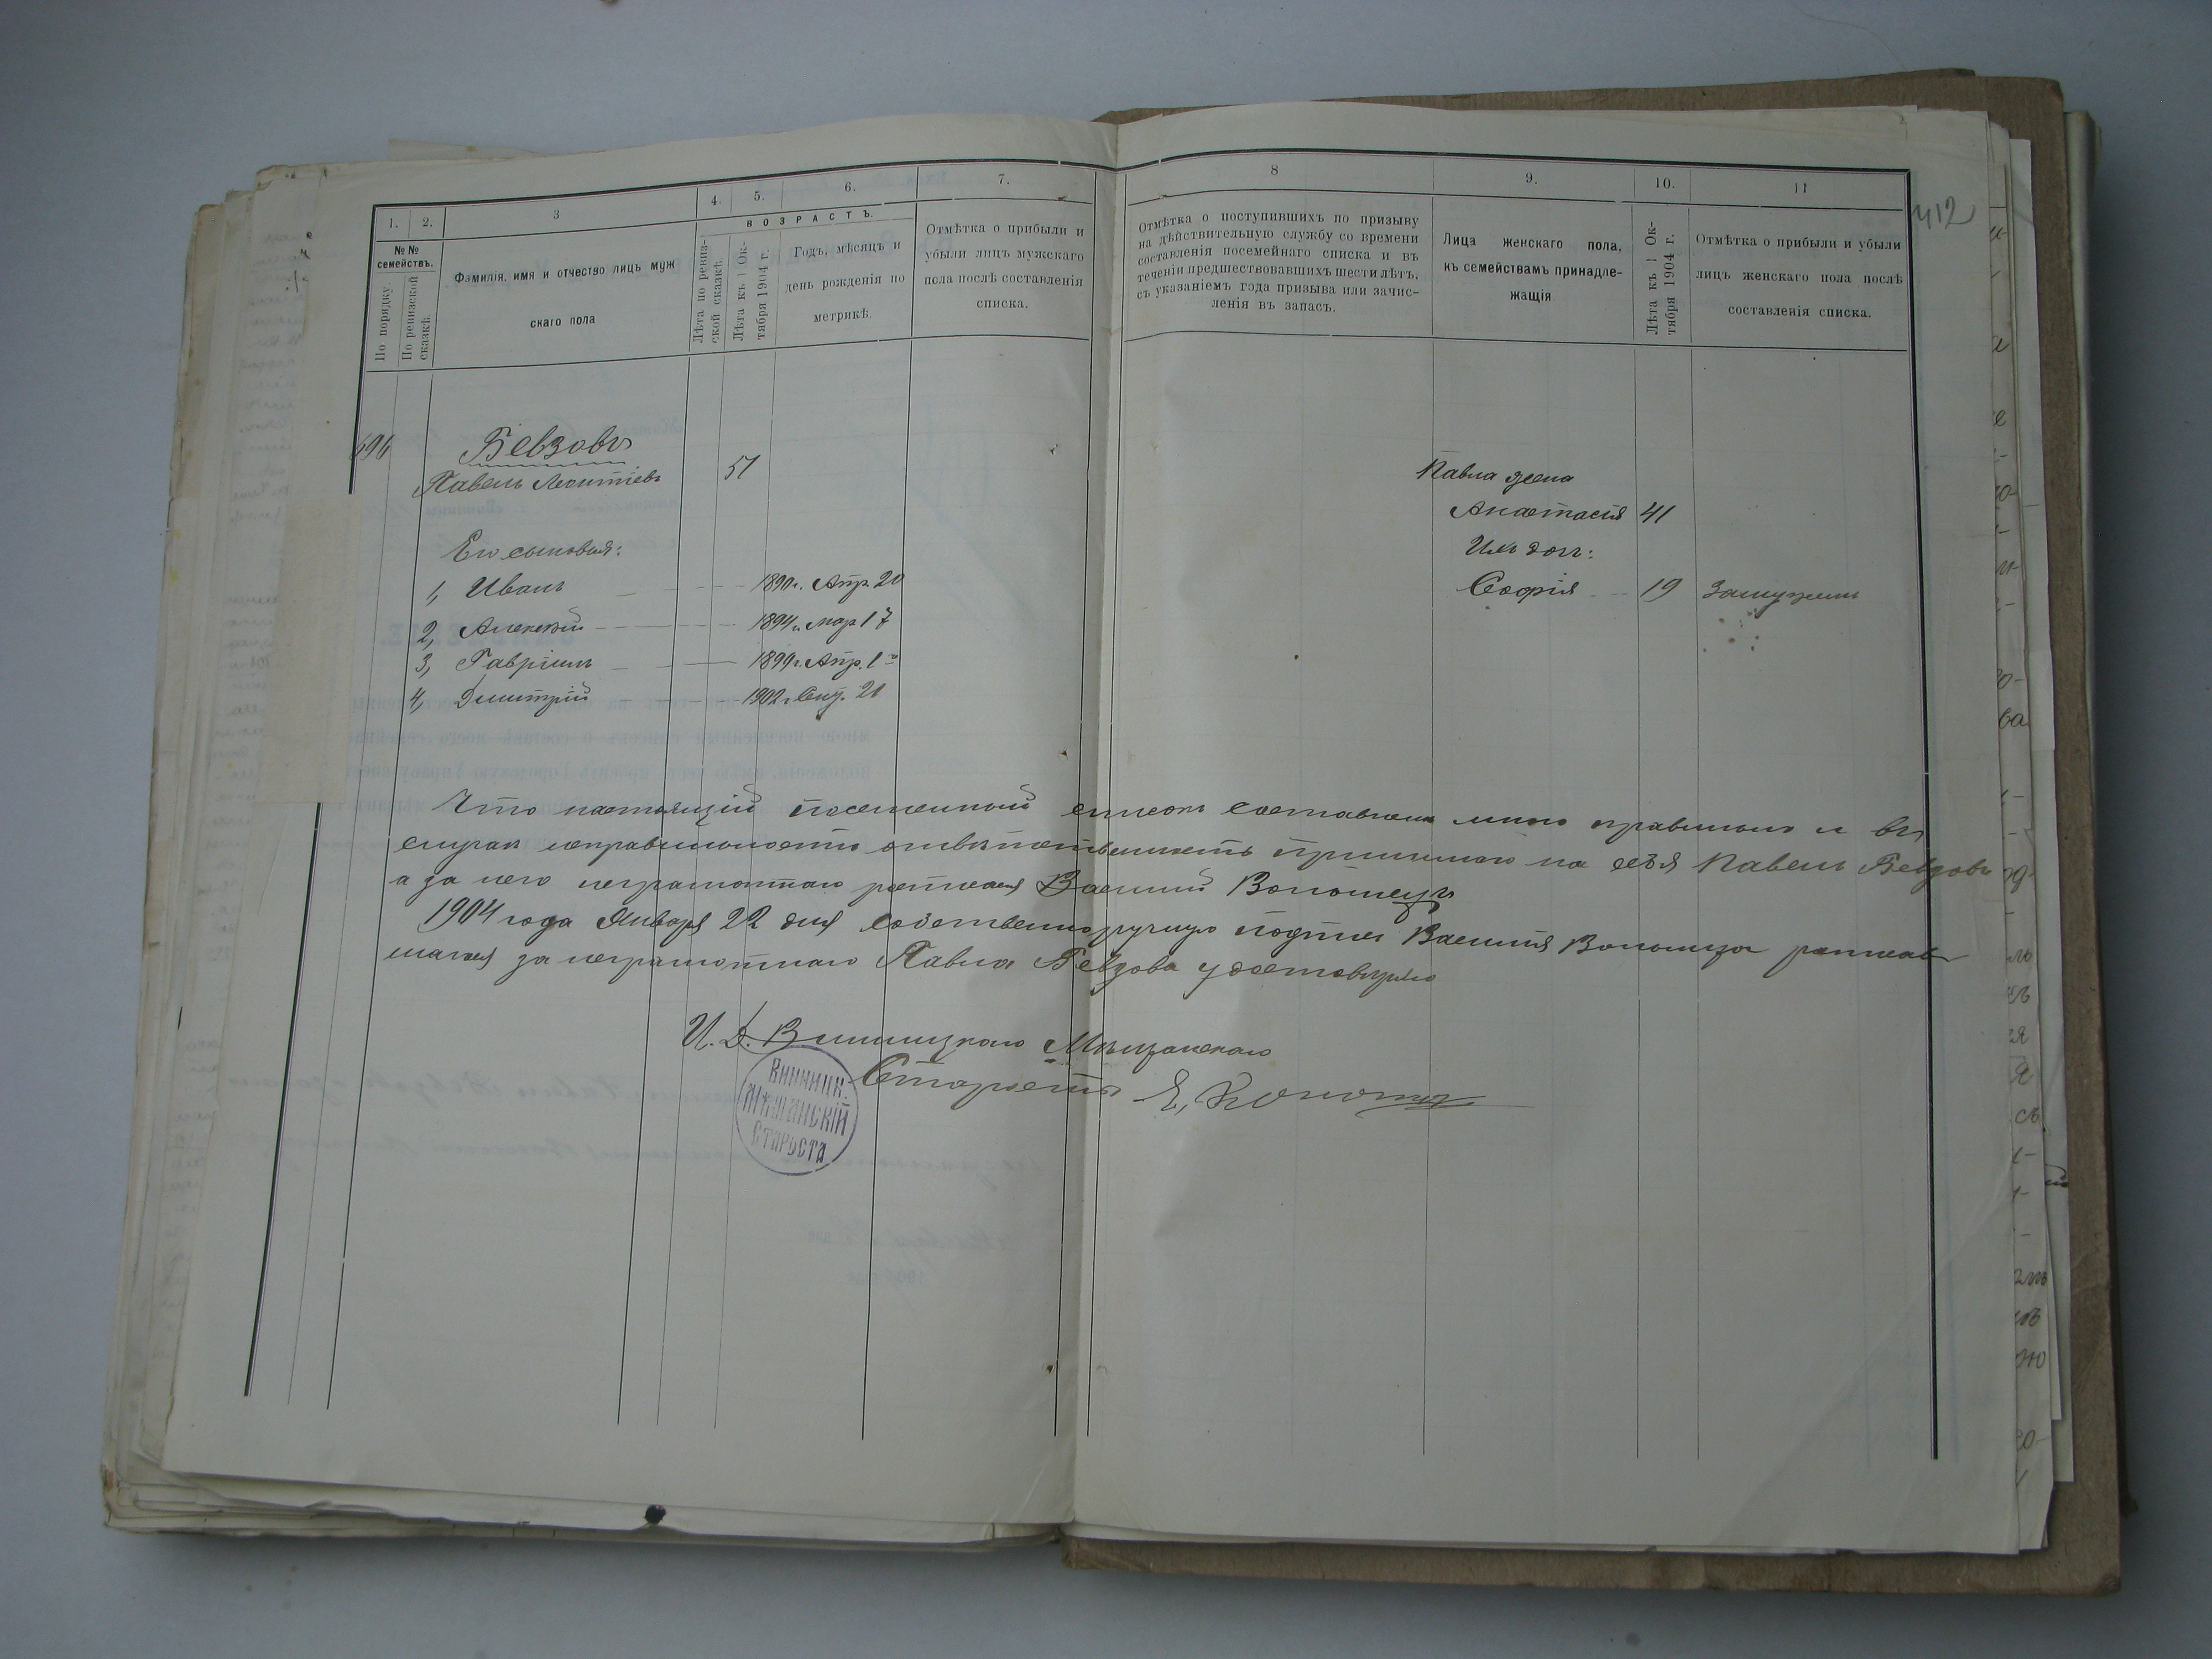 1.
2.
3
4.
5.
6.
7.
8
9.
10.
11
412
№ № семействъ.
По порядку.
По ревизской сказкѣ.
Фамилія, имя и отчество лицъ муж
скаго пола
ВОЗРАСТЪ.
Лѣта по ревиз-
ской сказкѣ.
Лѣта къ 1 Ок-
тября 1904 г.
Годъ, мѣсяцъ и
день рожденія по
метрикѣ.
Отмѣтка о прибыли и
убыли лицъ мужскаго
пола послѣ составленія
списка.
Отмѣтка о поступившихъ по призыву
на дѣйствительную службу со времени
составленія посемейнаго списка и въ
теченіи предшествовавшихъ шести лѣтъ,
съ указаніемъ года призыва или зачис-
ленія въ запасъ.
Лица женскаго пола,
къ семействамъ принадле-
жащія
Лѣта къ 1 Ок-
тября 1904 г.
Отмѣтка о прибыли и убыли
лицъ женскаго пола послѣ
составленія списка.
Бевзовъ
Павелъ Леонтіевъ 51
Его сыновья:
1, Иванъ 1890 г. Апр. 20
2, Алексѣй 1894 г. Мар 17
3, Гавріилъ 1899 г. Апр. 1
4, Дмитрій 1902 г. Сен. 21
Павла жена
Анастасія 41
Ихъ доч:
Софія 19 Замужемъ
Что настоящій посемейный списокъ составленъ мною правильно и въ
случаѣ неправильности отвѣтственность принимаю на себя Павелъ Бевзовъ
а за него неграмотнаго росписался Василій Волошецъ
1904 года Января 22 дня собственноручную подпись Василія Волошца росписав
шагося за неграмотнаго Павла Бевзова удостовѣряю
И. Д. Винницкаго Мѣщанскаго
Старосты
ВИННИЦК.
МѢЩАНСКІЙ
СТАРОСТА